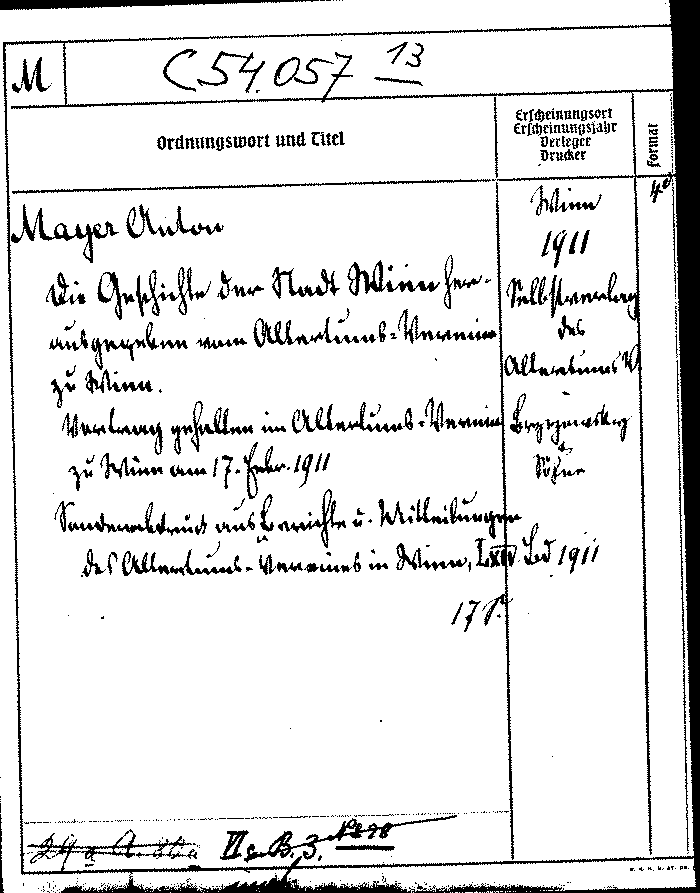 M
C 54.057 13
Ordnungswort und Titel
Erscheinungsort
Erscheinungsjahr
Verleger
Drucker
Format
Mayer Anton
Wien
1911
4°
Die Geschichte der Stadt Wien her-
ausgegeben vom Altertums-Vereine
zu Wien.
Selbstverlag
des
Altertums V
Vortrag gehalten im Altertums-Verein
zu Wien am 17. Febr. 1911
Söhne
Sonderabdruck aus Berichte u. Mitteilungen
des Altertums-Vereines in Wien, Bd 1911
17 S.
VI B. 3.